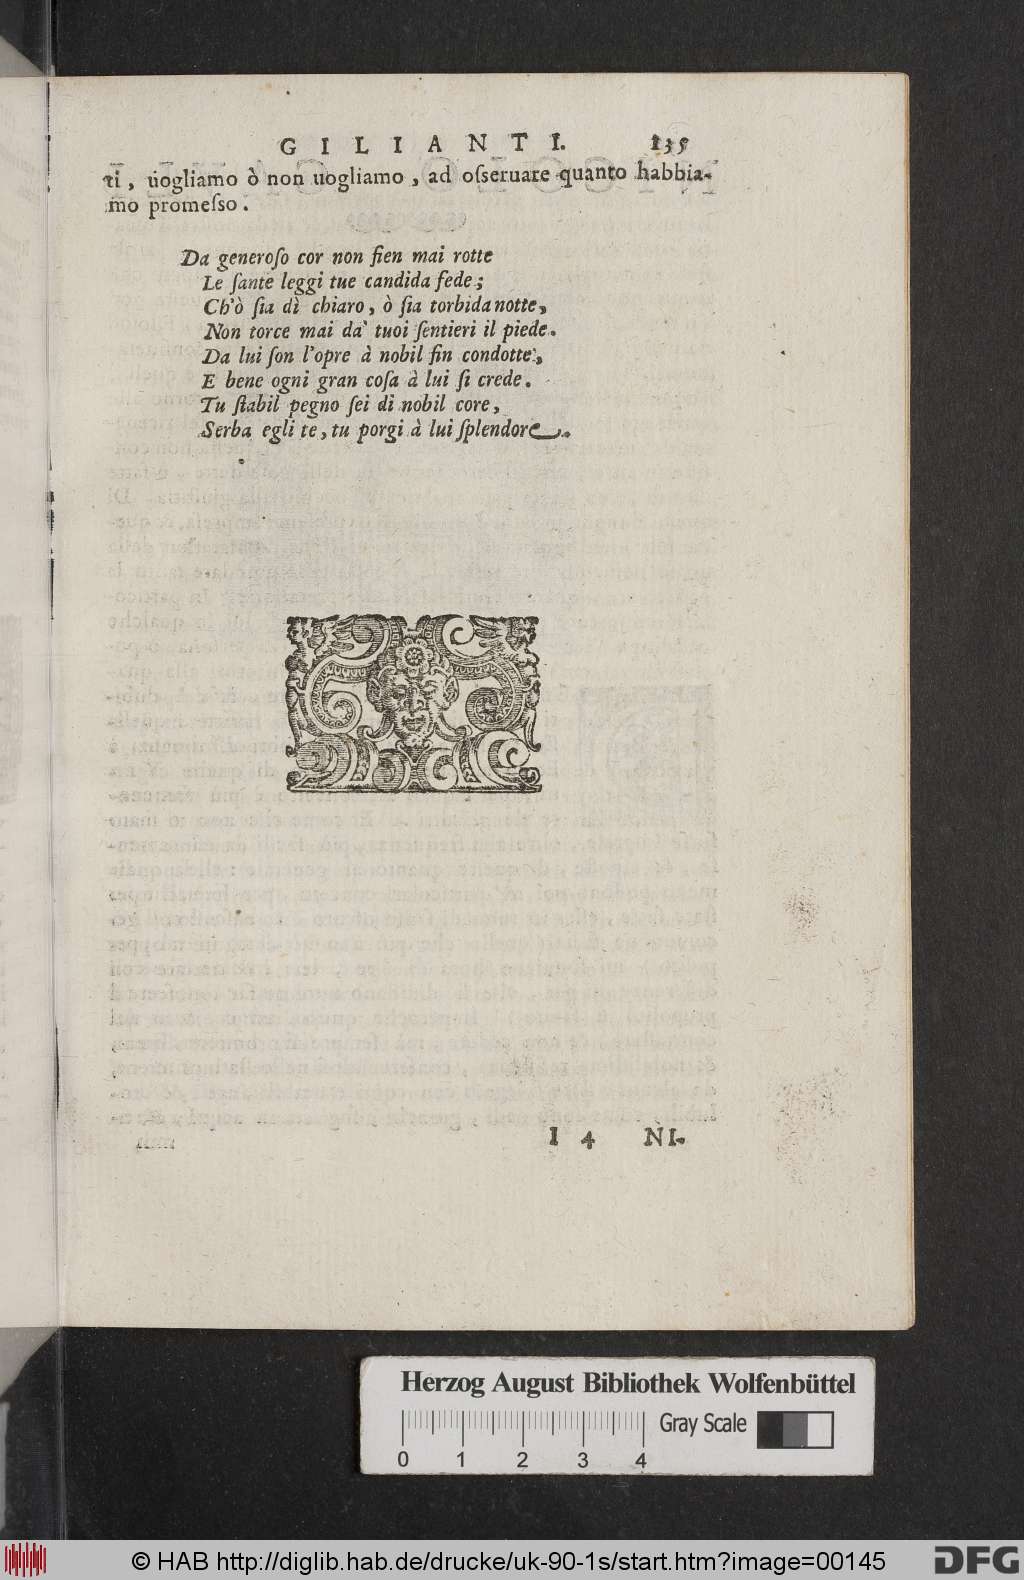 GILIANTI. 135
ti, uogliamo ò non uogliamo, ad oſseruare quanto habbia-
mo promeſso.
Da generoſo cor non fien mai rotte
Le ſante leggi tue candida fede;
Ch'ò ſia dì chiaro, ò ſia torbida notte,
Non torce mai da' tuoi ſentieri il piede.
Da lui ſon l'opre à nobil fin condotte,
E bene ogni gran coſa à lui ſi crede.
Tu ſtabil pegno ſei di nobil core,
Serba egli te, tu porgi à lui ſplendore.
I 4 NI-
Herzog August Bibliothek Wolfenbüttel
Gray Scale
0 1 2 3 4
© HAB http://diglib.hab.de/drucke/uk-90-1s/start.htm?image=00145
DFG